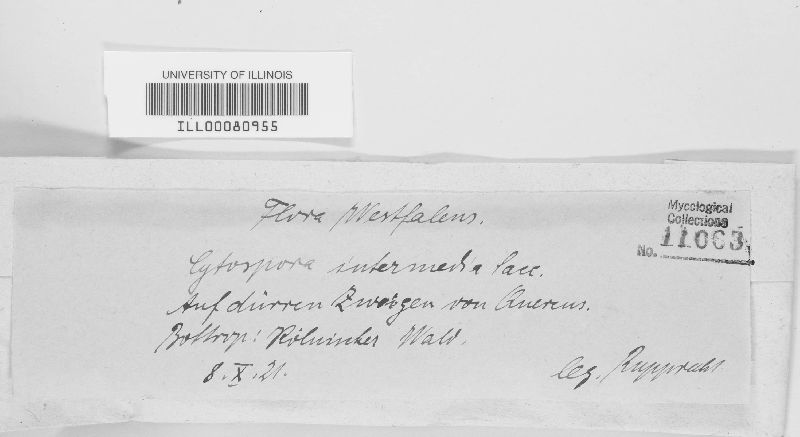 UNIVERSITY OF ILLINOIS
ILL00080955
Flora Westfalens.
Mycological
Collections
No. 11063
Cytospora intermedia Sacc.
Auf dürren Zweigen von Quercus.
Bottrop: Kölnischer Wald.
8.X.21. leg. Rupprecht